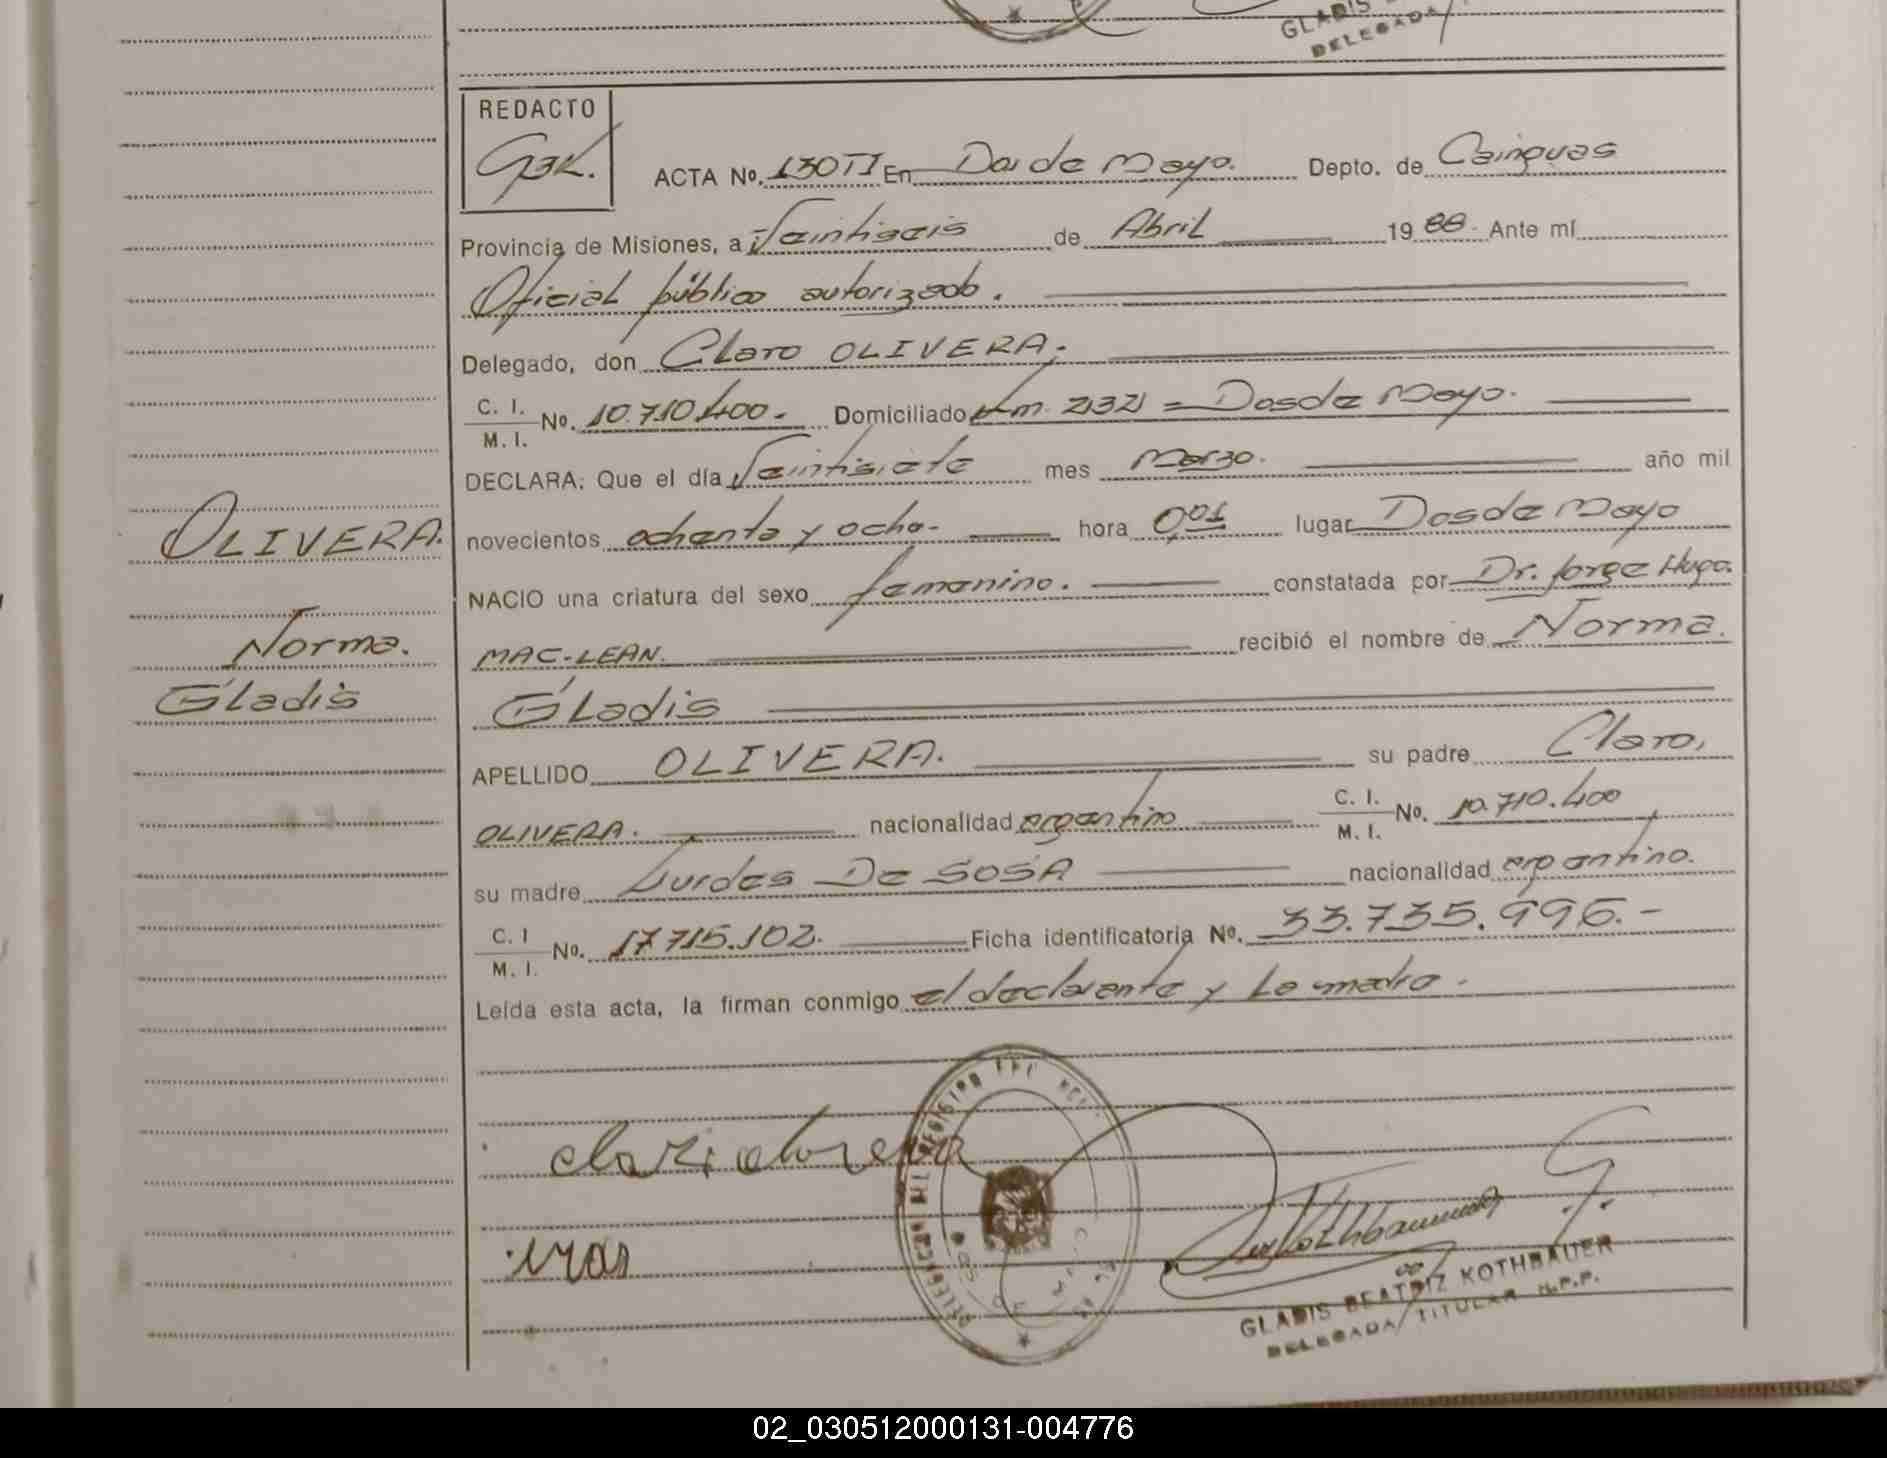 GLADIS
DELEGADA
REDACTO
GBK.
ACTA No. 130TI En Dos de Mayo. Depto. de Cainguas
Provincia de Misiones, a Veintiseis de Abril 19 88. Ante mí
Oficial público autorizado.
Delegado, don Claro OLIVERA.
C. I.
M. I. No. 10.710.400. Domiciliado Km. 232 = Dos de Mayo.
DECLARA: Que el día Veintisiete mes Marzo. año mil
novecientos ochenta y ocho- hora 0,01 lugar Dos de Mayo
NACIO una criatura del sexo femenino. constatada por Dr. Jorge Hugo.
MAC-LEAN. recibió el nombre de Norma.
Gladis
APELLIDO OLIVERA. su padre Claro,
OLIVERA. nacionalidad argentino C. I.
M. I. No. 10.710.400
su madre Lurdes De SOSA nacionalidad argentino.
C. I
M. I. No. 17.715.102. Ficha identificatoria No. 33.735.996.-
Leída esta acta, la firman conmigo el declarante y la madre.
OLIVERA.
Norma.
Gladis
GLADIS BEATRIZ KOTHBAUER
DELEGADA TITULAR R.P.P.
02_030512000131-004776